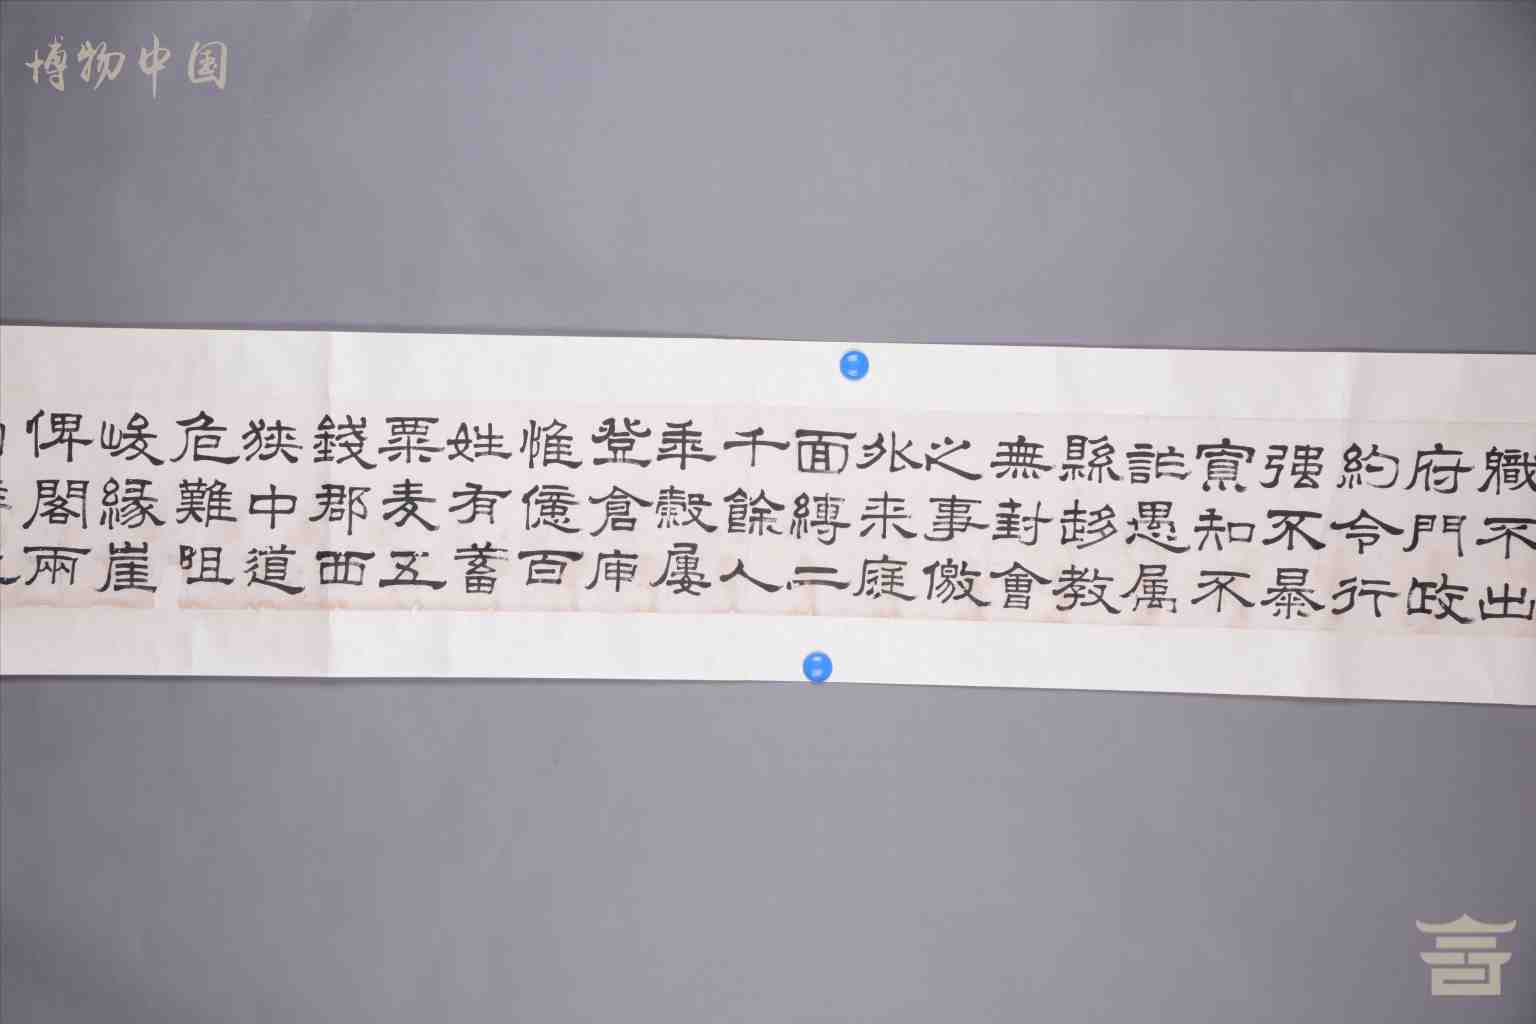 博物中国
職不出
府門政
約令行
强不暴
寡知不
詐愚属
縣趍教
無對會
之事儌
外来庭
面縛二
千餘人
年穀屢
登倉庾
惟億百
姓有蓄
粟麦五
錢郡西
狭中道
危難阻
峻縁崖
俾閣兩